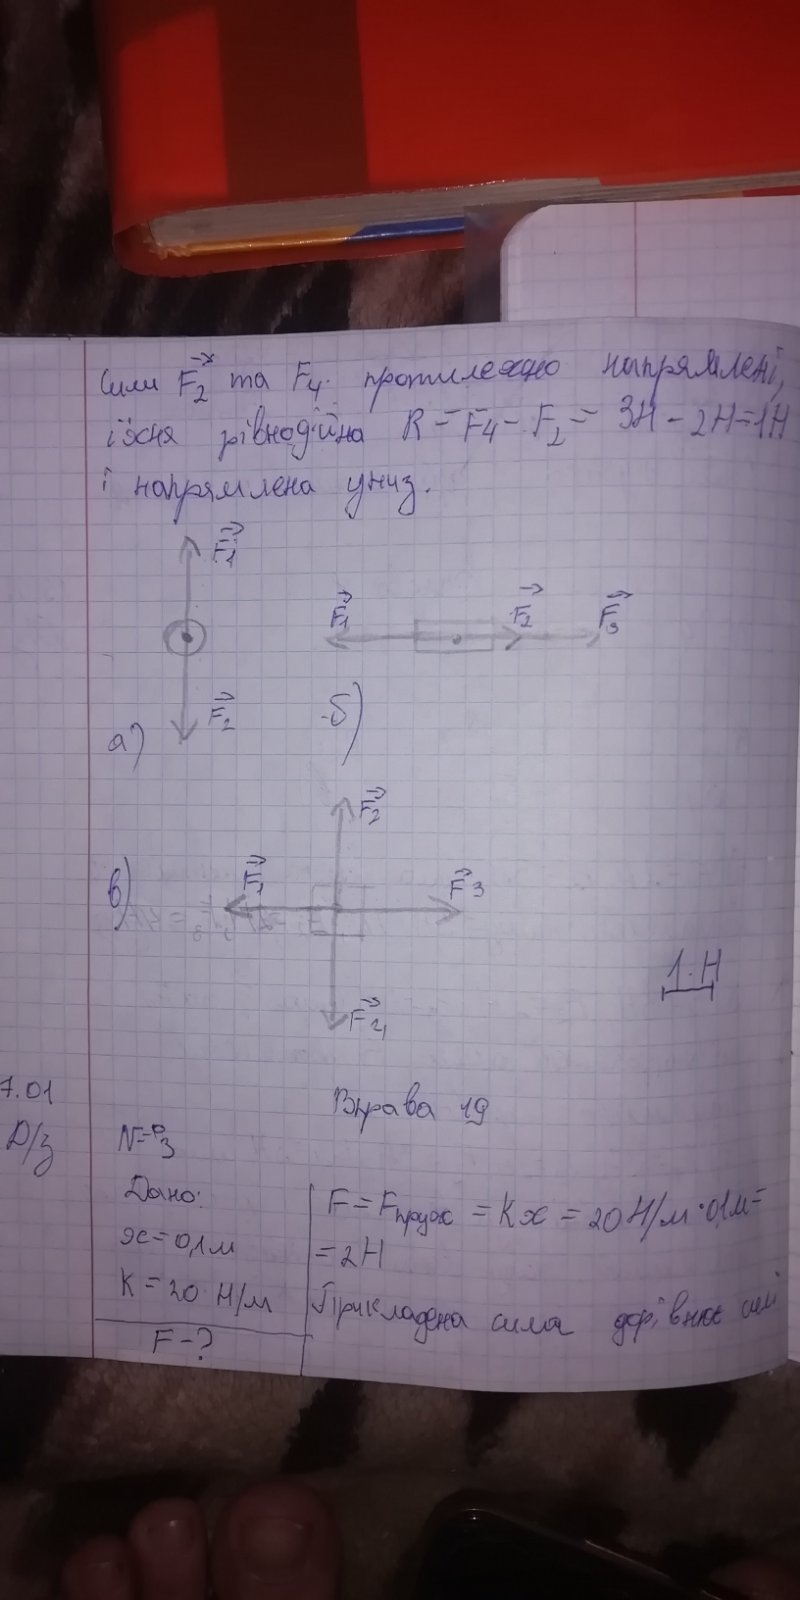 Сили F₂ та F₄ протилежно напрямлені,
їхня рівнодійна R = F₄ - F₂ = 3Н - 2Н = 1Н
і напрямлена униз.
F₁
F₁ F₂ F₃
F₂
а) б)
F₂
в) F₁ F₃
1 Н
F₄
7.01 Вправа 19
Д/з №3
Дано:
x = 0,1 м
k = 20 Н/м
F - ?
F = Fпруж = kx = 20 Н/м · 0,1 м =
= 2Н
Прикладена сила дорівнює силі